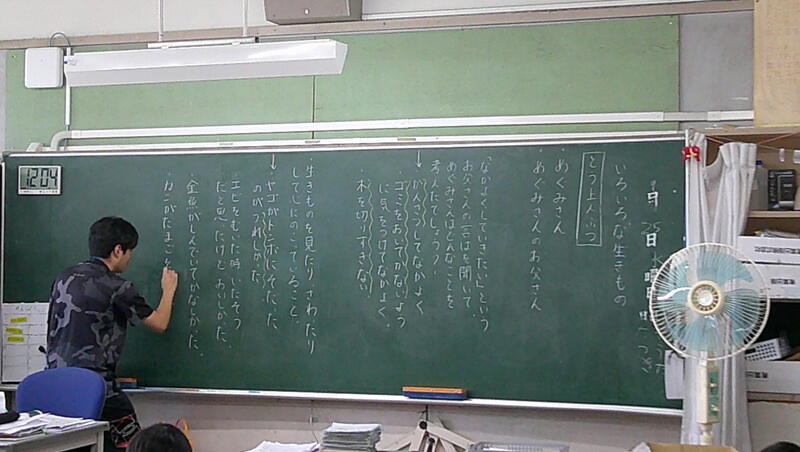 月25日水曜日
いろいろな生きもの
とう上人ぶつ
めぐみさん
めぐみさんのお父さん
「なかよくしていきたい」という
お父さんの言ばを聞いて、
めぐみさんはどんなことを
考えたでしょう。
・かんさつしてなかよく
・ゴミをおいてかないよう
に気をつけてなかよく。
・木を切りすぎない。
・生きものを見たり さわったり
してしにのこっていること。
・ヤゴがトンボにそだった
のがうれしかった。
・エビをむいた時いたそう
だと思ったけどおいしかった。
・金魚がしんでいてかなしかった。
・カニがたまごを
12:04